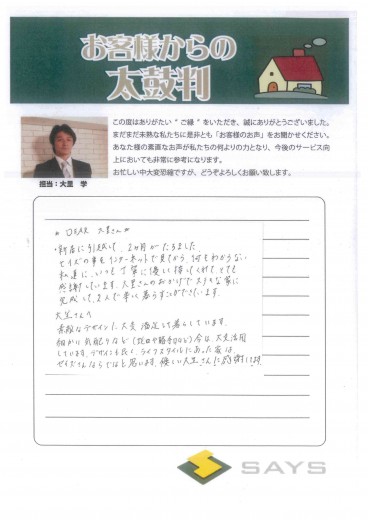 お客様からの
太鼓判
この度はありがたい“ご縁”をいただき、誠にありがとうございました。
まだまだ未熟な私たちに是非とも「お客様のお声」をお聞かせください。
あなた様の素直なお声が私たちの何よりの力となり、今後のサービス向
上においても非常に参考になります。
お忙しい中大変恐縮ですが、どうぞよろしくお願い致します。
担当：大重 学
DEAR 大重さん
新居に引越して、2ヶ月がたちました。
セイズの事をインターネットで見てから、何もわからない
私達に、いつも丁寧に優しく接してくれて、とても
感謝しています。大重さんのおかげでステキな家に
完成して、2人で幸せに暮らすことができています。
大重さんへ
素敵なデザインに大変満足して暮らしています。
細かい気配りなど
今は、大変活用
しています。デザインも良く、ライフスタイルにあった家は、
セイズさんならではと思います。優しい大重さんに感謝です。
SAYS